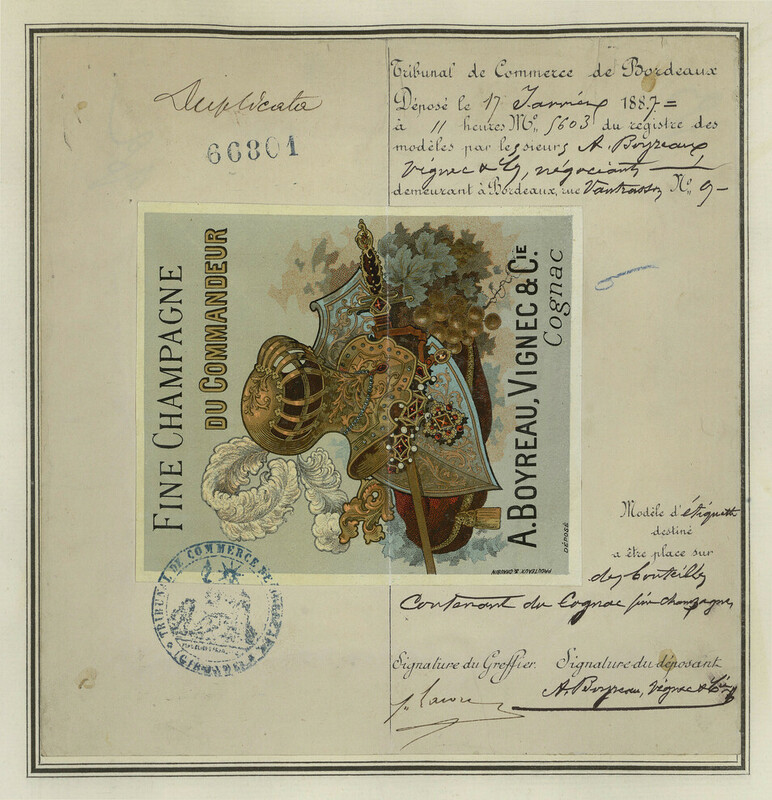 Duplicata
66801
Tribunal de Commerce de Bordeaux
Déposé le 17 Janvier 1887=
à 11 heures No 5603 du registre des
modèles par les sieurs A. Boyreau,
Vignec & Cie, négociants
demeurant à Bordeaux, rue No 9-
FINE CHAMPAGNE
DU COMMANDEUR
A. BOYREAU, VIGNEC & CIE.
Cognac
DÉPOSÉ
Modèle d'étiquette
destiné
a être place sur
des bouteilles
Contenant du Cognac fine Champagne
TRIBUNAL DE COMMERCE DE
(GIRONDE)
Signature du Greffier. Signature du déposant
A. Boyreau, Vignec & Cie